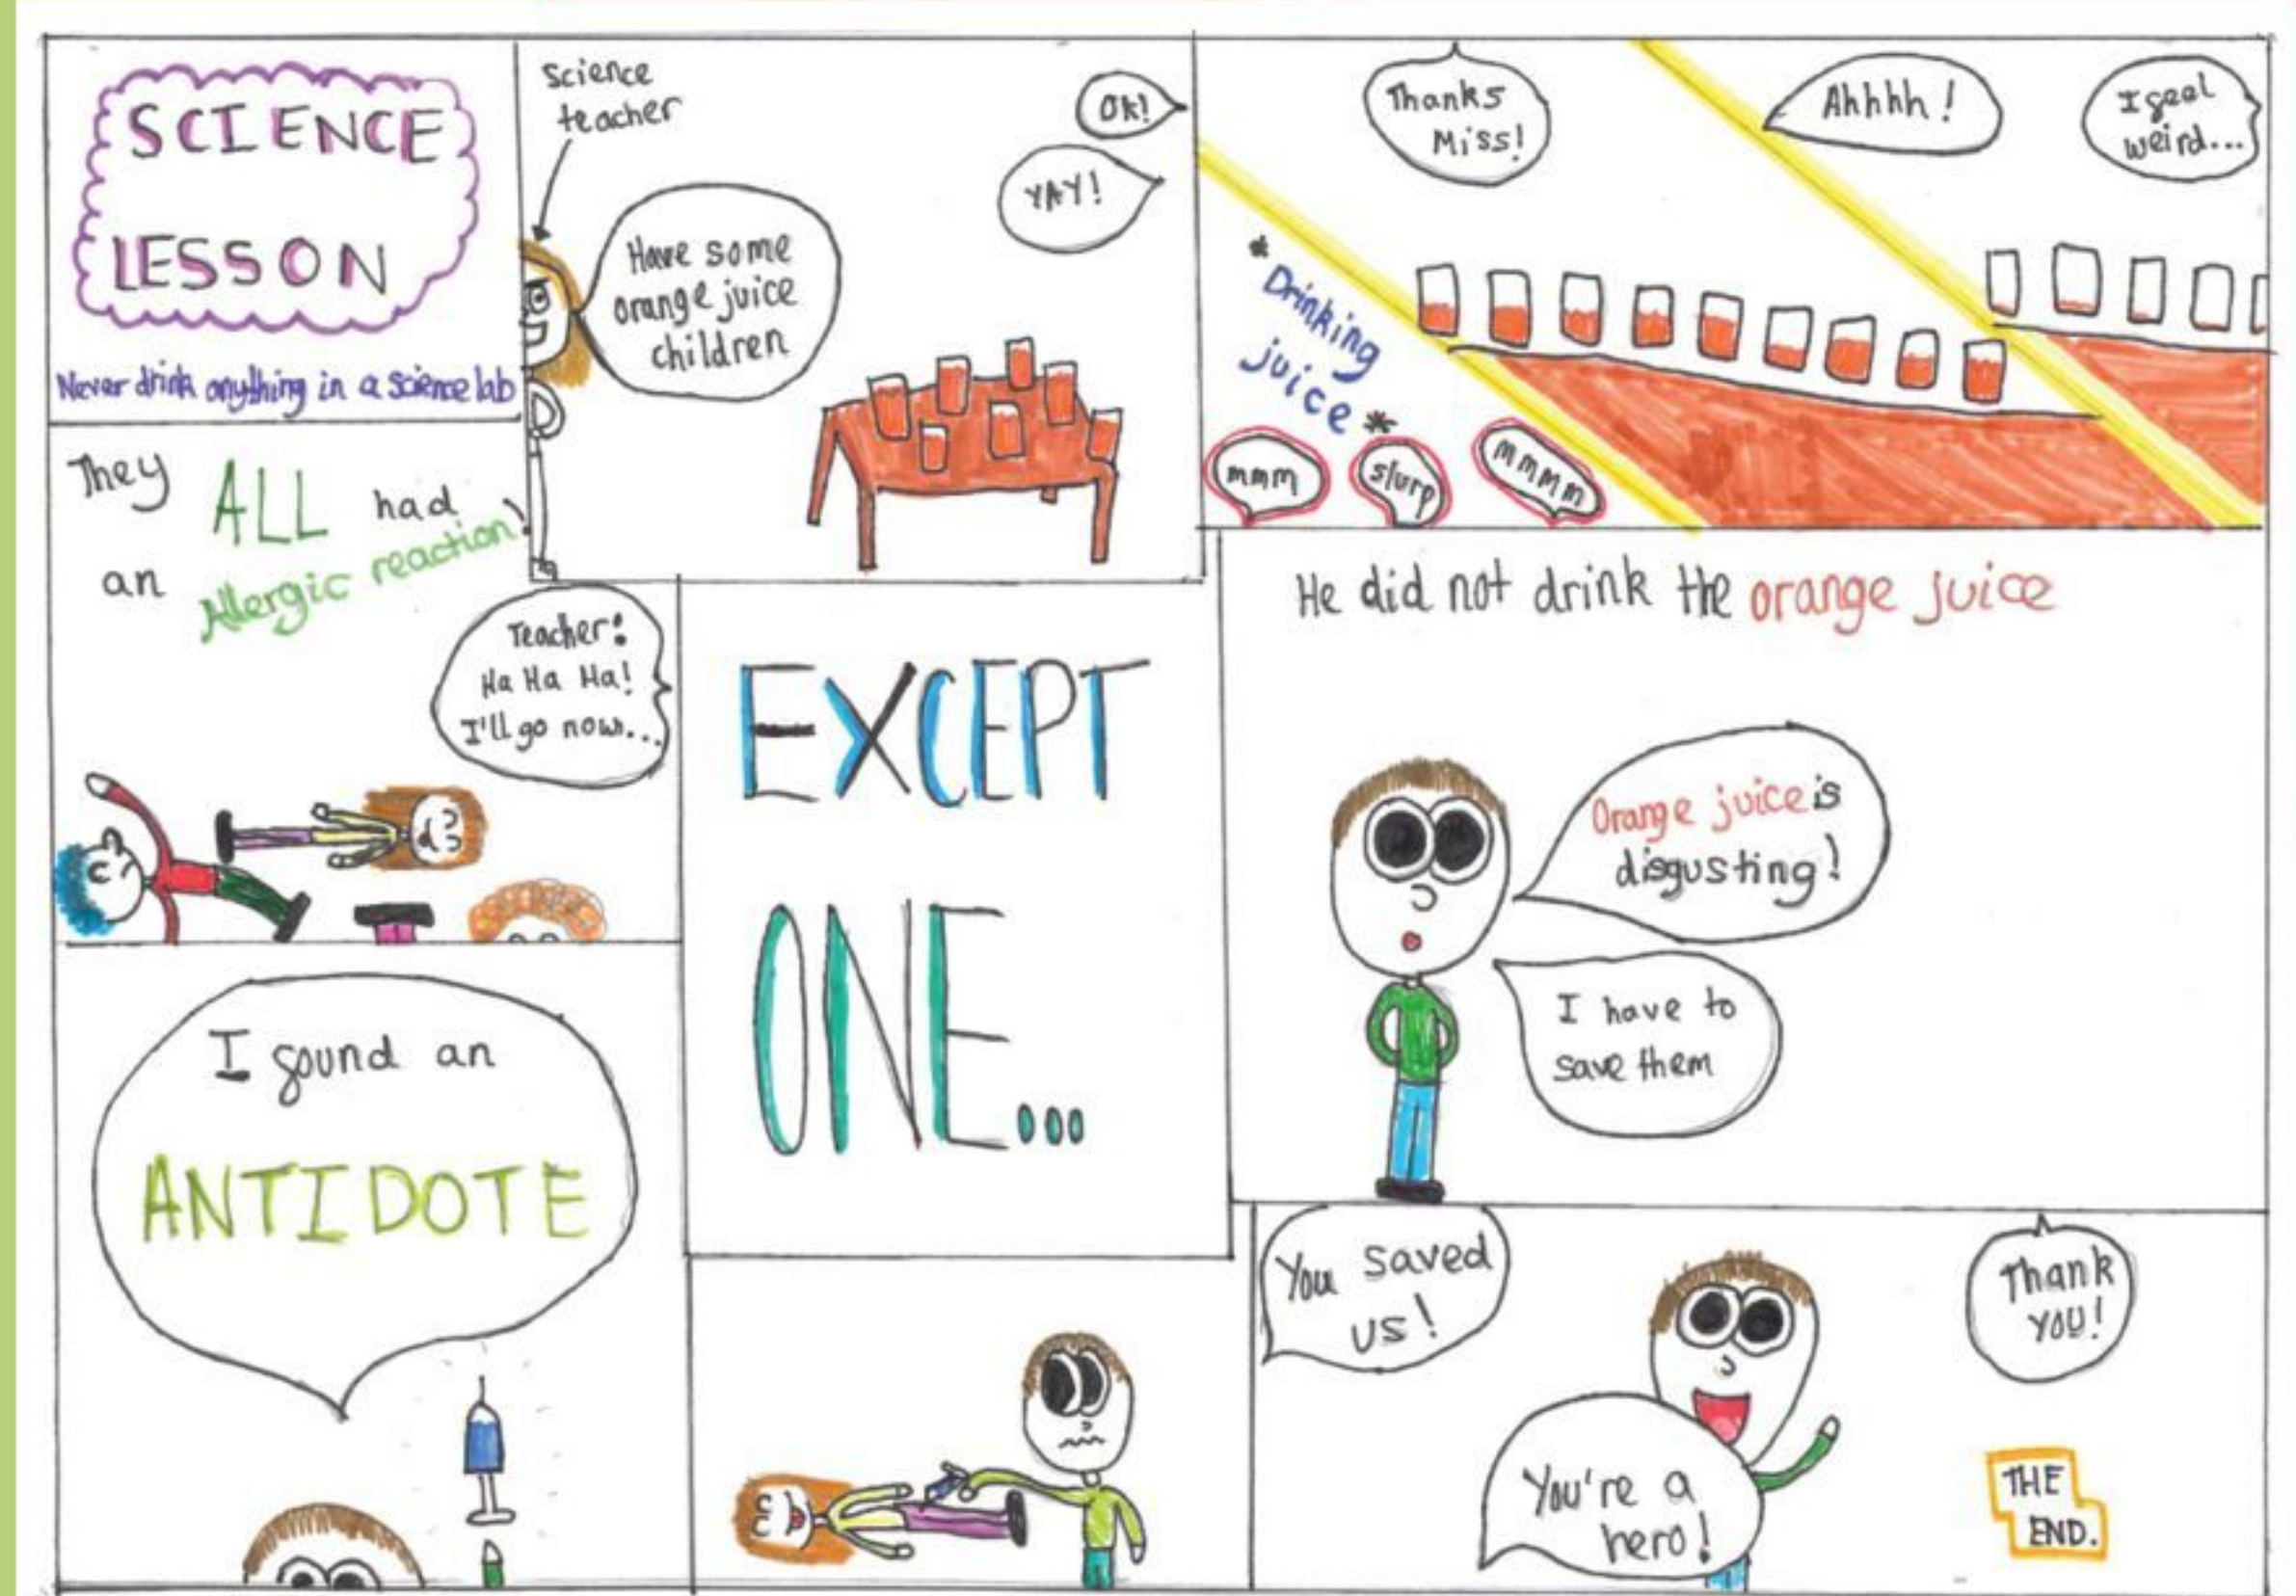 SCIENCE
LESSON
Never drink anything in a science lab
science
teacher
Have some
orange juice
children
Ok!
YAY!
Thanks
Miss!
* Drinking
juice *
mmm
slurp
mmmm
Ahhhh!
I feel
weird...
They ALL had
an Allergic reaction!
Teacher:
Ha Ha Ha!
I'll go now...
EXCEPT
ONE...
He did not drink the orange juice
Orange juice is
disgusting!
I have to
save them
I found an
ANTIDOTE
You saved
us!
You're a
hero!
Thank
you!
THE
END.